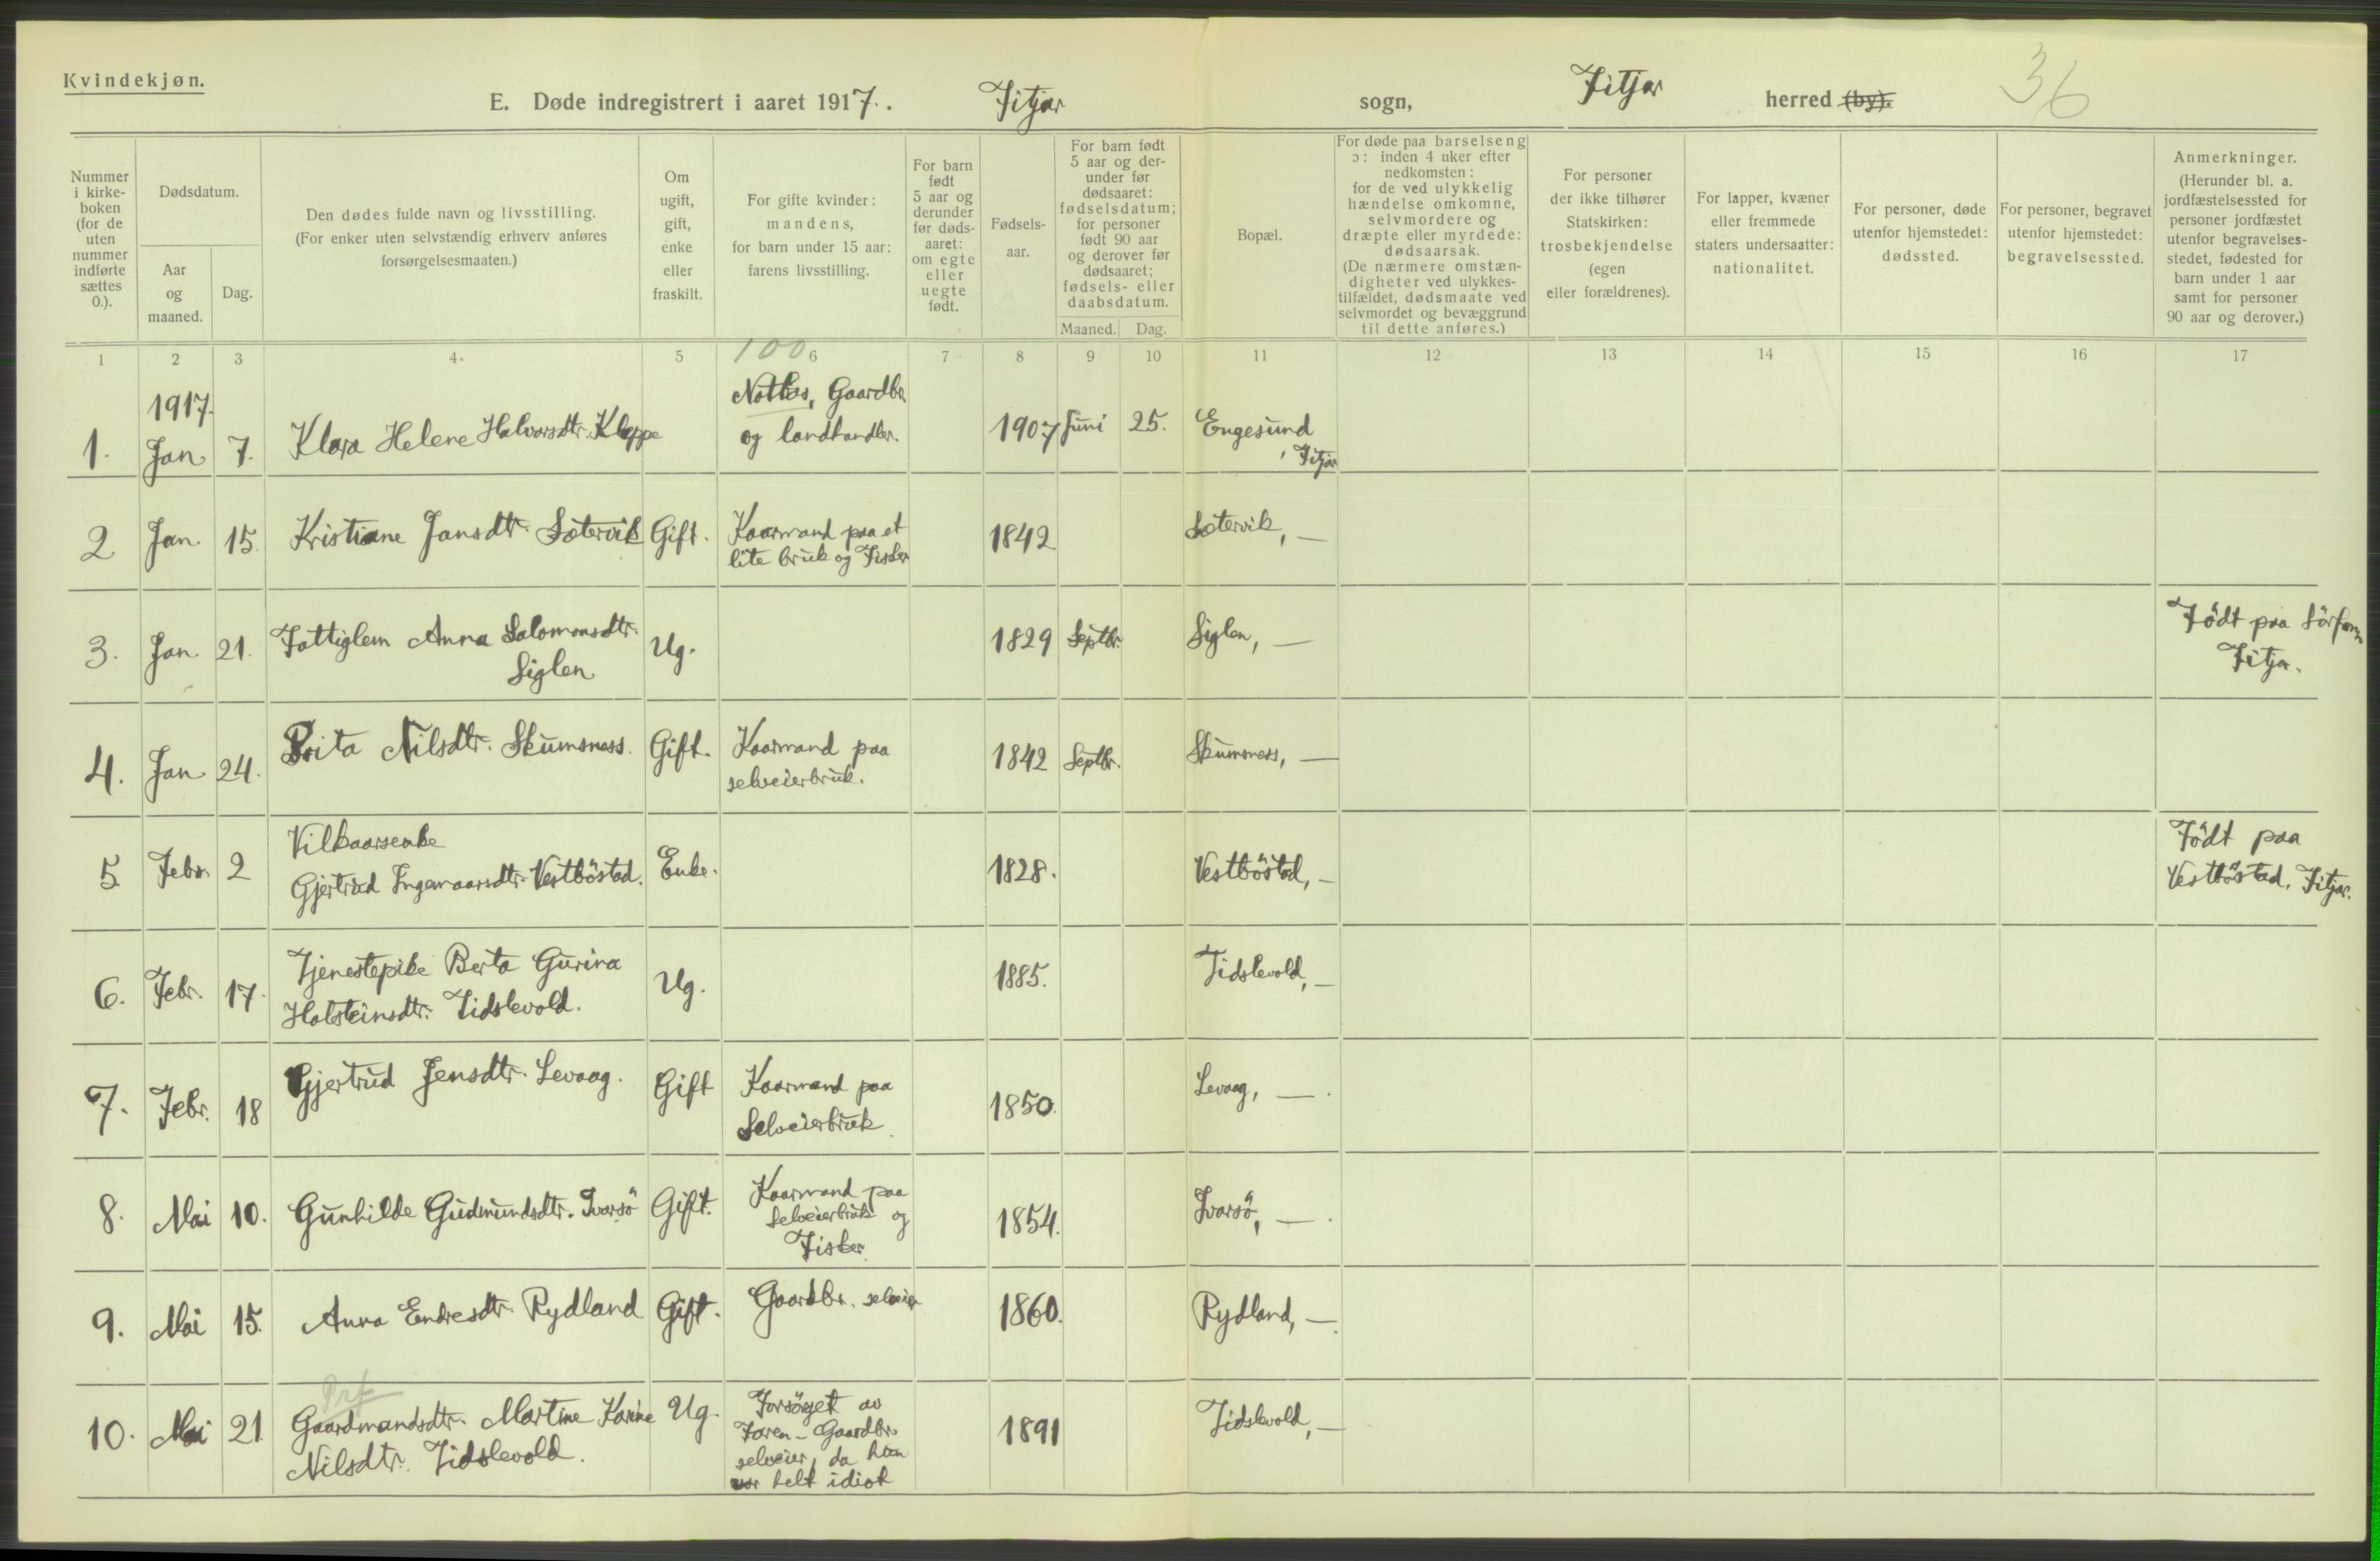 Kvindekjøn.
E. Døde indregistrert i aaret 1917. Fitjar sogn, Fitjar herred (by). 36
Nummer i kirke-boken (for de uten nummer indførte sættes 0.).
Dødsdatum.
Aar og maaned.
Dag.
Den dødes fulde navn og livsstilling.
(For enker uten selvstændig erhverv anføres forsørgelsesmaaten.)
Om ugift, gift, enke eller fraskilt.
For gifte kvinder: mandens, for barn under 15 aar: farens livsstilling.
For barn født 5 aar og derunder før døds-aaret: om egte eller uegte født.
Fødsels-aar.
For barn født 5 aar og der-under før dødsaaret: fødselsdatum; for personer født 90 aar og derover før dødsaaret; fødsels- eller daabsdatum.
Maaned. Dag.
Bopæl.
For døde paa barselseng ɔ: inden 4 uker efter nedkomsten: for de ved ulykkelig hændelse omkomne, selvmordere og dræpte eller myrdede: dødsaarsak. (De nærmere omstæn-digheter ved ulykkes-tilfældet, dødsmaate ved selvmordet og bevæggrund til dette anføres.)
For personer der ikke tilhører Statskirken: trosbekjendelse (egen eller forældrenes).
For lapper, kvæner eller fremmede staters undersaatter: nationalitet.
For personer, døde utenfor hjemstedet: dødssted.
For personer, begravet utenfor hjemstedet: begravelsessted.
Anmerkninger. (Herunder bl. a. jordfæstelsessted for personer jordfæstet utenfor begravelses-stedet, fødested for barn under 1 aar samt for personer 90 aar og derover.)
1 2 3 4 5 6 7 8 9 10 11 12 13 14 15 16 17
100
1917.
1. Jan. 7. Klara Helene Halvorsdtr. Kleppe Notbas, Gaardbr. og landhandler. 1907 Juni 25. Engesund, Fitjar
2 Jan. 15. Kristiane Jansdtr. Sætervik Gift. Kaarmand paa et lite bruk og Fisker 1842 Sætervik, —
3. Jan. 21. Fattiglem Anna Salomonsdtr. Siglen Ug. 1829 Septbr. Siglen, — Födt paa Fitjar.
4. Jan. 24. Brita Nilsdtr. Skumsnæss. Gift. Kaarmand paa selveierbruk. 1842 Septbr. Skumsnæss, —
5 Febr. 2 Vilkaarsenke Gjertrud Ingemaarsdtr. Vestböstad. Enke. 1828. Vestböstad, — Födt paa Vestböstad, Fitjar.
6. Febr. 17. Tjenestepike Berta Gurina Halsteinsdtr. Tidslevold. Ug. 1885. Tidslevold, —
7. Febr. 18 Gjertrud Jensdtr. Levaag. Gift Kaarmand paa Selveierbruk. 1850. Levaag, —.
8. Mai 10. Gunhilde Gudmundsdtr. Ivarsö Gift. Kaarmand paa Selveierbruk og Fisker. 1854. Ivarsö, —.
9. Mai 15. Anna Endresdtr. Rydland Gift. Gaardbr. selveier 1860. Rydland, —.
10. Mai 21 Gaardmandsdtr. Martine Karine Nilsdtr. Tidslevold. Ug. Forsörget av Faren - Gaardbr. selveier, da hun var helt idiot 1891 Tidslevold, —